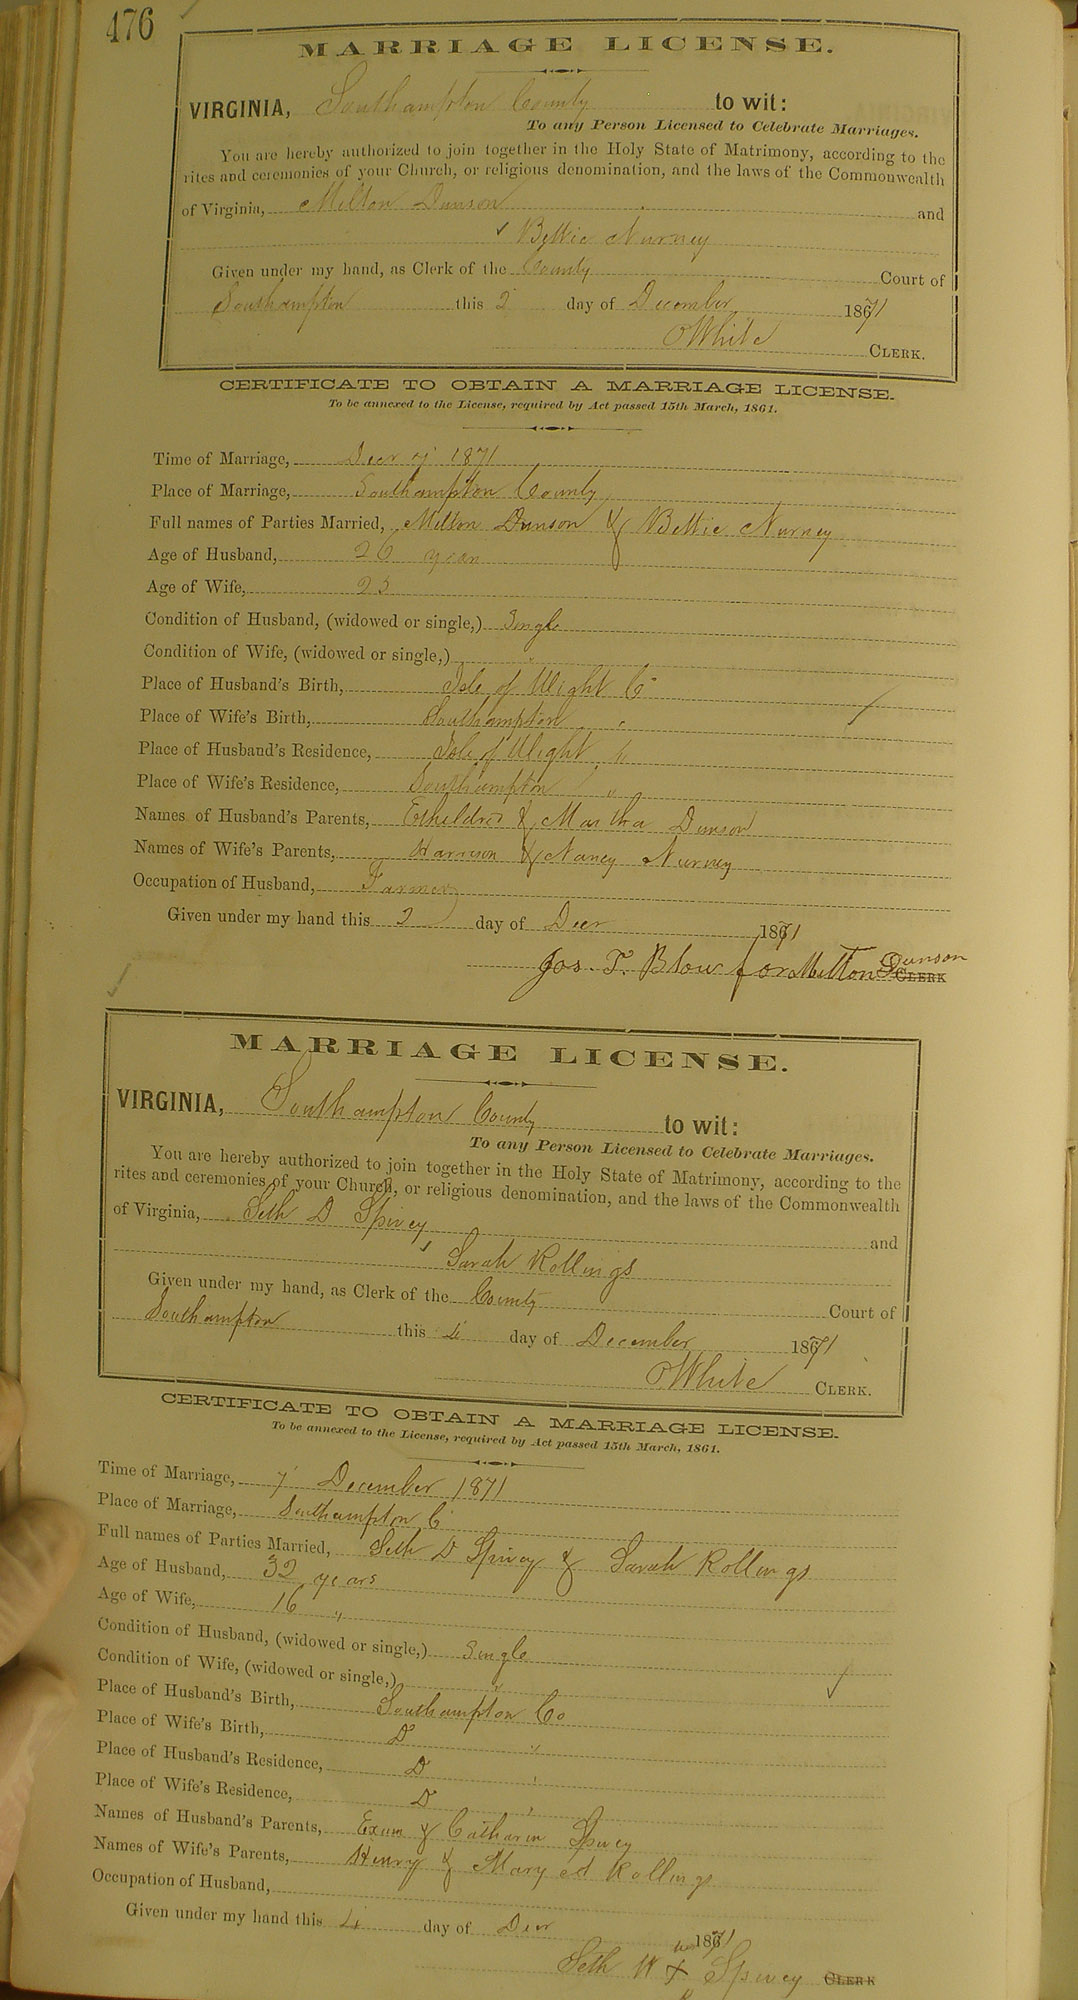 476
MARRIAGE LICENSE.
VIRGINIA, Southampton County to wit:
To any Person Licensed to Celebrate Marriages.
You are hereby authorized to join together in the Holy State of Matrimony, according to the
rites and ceremonies of your Church, or religious denomination, and the laws of the Commonwealth
of Virginia, Milton Dunson and
Bettie Nurney
Given under my hand, as Clerk of the County Court of
Southampton this 2 day of December 1871
White CLERK.
CERTIFICATE TO OBTAIN A MARRIAGE LICENSE.
To be annexed to the License, required by Act passed 15th March, 1861.
Time of Marriage, Decr 7 1871
Place of Marriage, Southampton County
Full names of Parties Married, Milton Dunson & Bettie Nurney
Age of Husband, 26 years
Age of Wife, 25
Condition of Husband, (widowed or single,) Single
Condition of Wife, (widowed or single,) "
Place of Husband's Birth, Isle of Wight Co
Place of Wife's Birth, Southampton "
Place of Husband's Residence, Isle of Wight "
Place of Wife's Residence, Southampton "
Names of Husband's Parents, Etheldred & Martha Dunson
Names of Wife's Parents, Harrison & Nancy Nurney
Occupation of Husband, Farmer
Given under my hand this 2 day of Decr 1871
Jos. T. Blow for Milton Dunson CLERK
MARRIAGE LICENSE.
VIRGINIA, Southampton County to wit:
To any Person Licensed to Celebrate Marriages.
You are hereby authorized to join together in the Holy State of Matrimony, according to the
rites and ceremonies of your Church, or religious denomination, and the laws of the Commonwealth
of Virginia, Seth D Spivey and
Sarah Rollings
Given under my hand, as Clerk of the County Court of
Southampton this 4 day of December 1871
White CLERK.
CERTIFICATE TO OBTAIN A MARRIAGE LICENSE.
To be annexed to the License, required by Act passed 15th March, 1861.
Time of Marriage, 7 December 1871
Place of Marriage, Southampton Co
Full names of Parties Married, Seth D Spivey & Sarah Rollings
Age of Husband, 32 years
Age of Wife, 16 "
Condition of Husband, (widowed or single,) Single
Condition of Wife, (widowed or single,) "
Place of Husband's Birth, Southampton Co
Place of Wife's Birth, Do "
Place of Husband's Residence, Do "
Place of Wife's Residence, Do "
Names of Husband's Parents, Exum & Catharin Spivey
Names of Wife's Parents, Henry & Mary Rollings
Occupation of Husband,
Given under my hand this 4 day of Decr 1871
Seth X Spivey CLERK